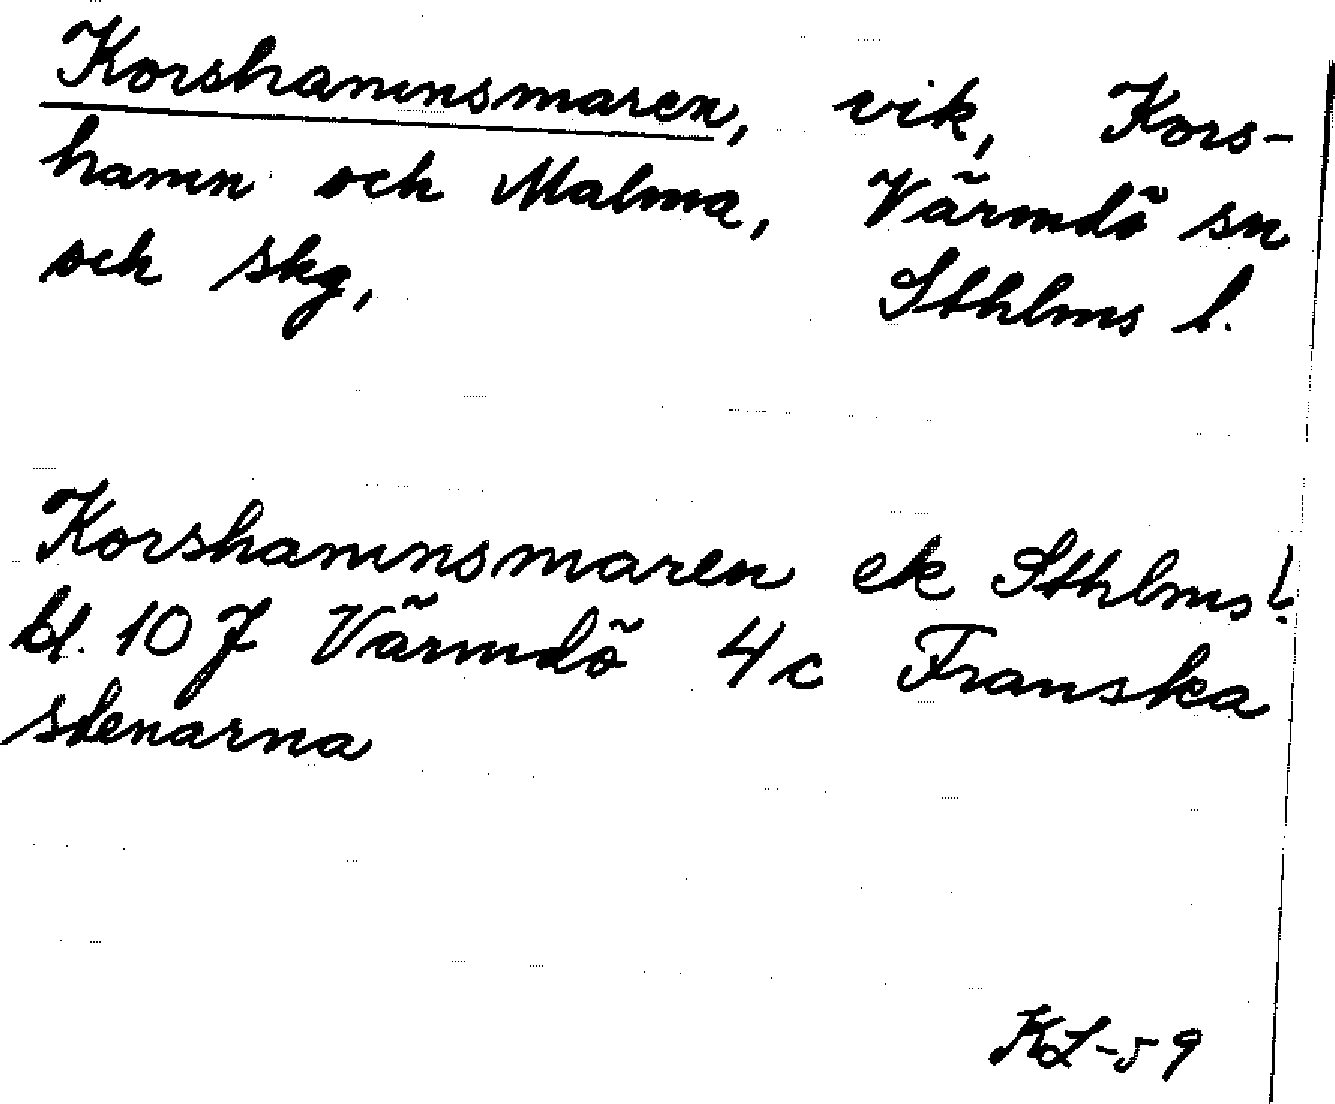 Korshamnsmaren, vik, Kors-
hamn och Malma, Värmdö sn
och skg, Sthlms l.
Korshamnsmaren ek Sthlms l.
bl. 10 J Värmdö 4c Franska
stenarna
KL-59